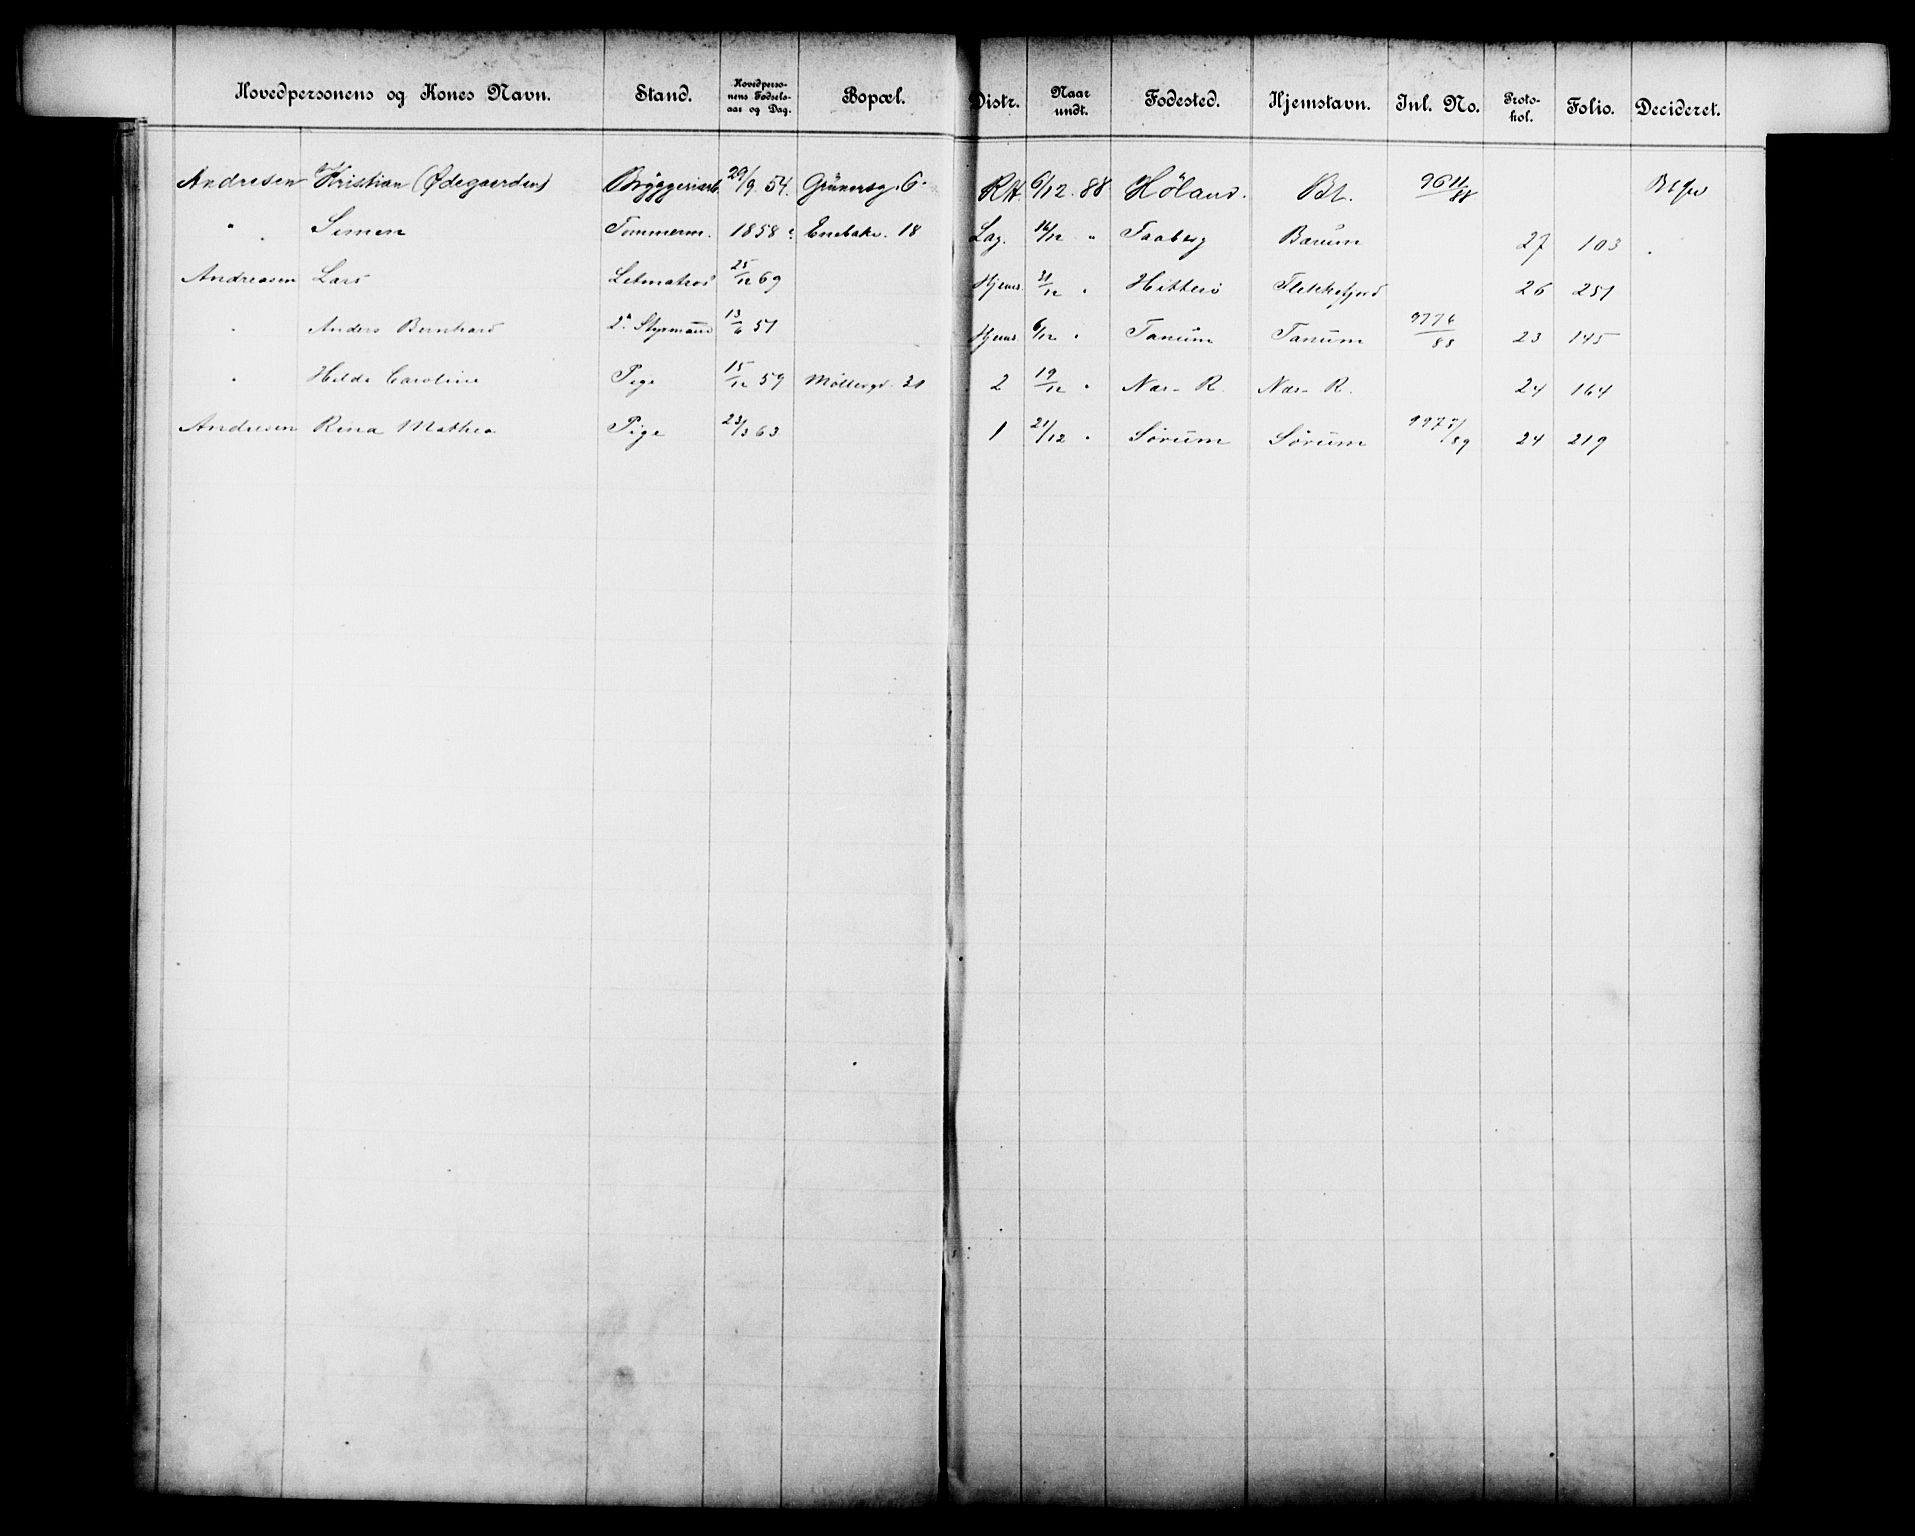 Hovedpersonens og Kones Navn. Stand. Hovedperso-nens Fødsels-aar og Dag. Bopæl. Distr. Naar undt. Fødested. Hjemstavn. Inl. No. Proto-kol. Folio. Decideret.
Andresen Kristian (Ødegaarden) Bryggeriarb. 29/9 54. Grünersg. 6. R.H. 6/12 88 Höland. Bt. 9611/88
" Simen Tømmerm. 1858 Enebakv. 18 Lag. 16/12 " Faaberg Bærum 27 103
Andreasen Lars Letmatros 25/12 69 Hjems. 31/12 " Hitterö Flekkefjord 26 251
" Anders Bernhard 2. Styrmand 13/6 51 Hjems. 6/12 " Tanum Tanum 9776/88 23 145
" Hilda Caroline Pige 15/12 59 Möllergd. 31 2 19/12 " Næs R. Næs R. 24 164
Andresen Rina Mathea Pige 23/3 63 1 21/12 " Sörum Sörum 24 219